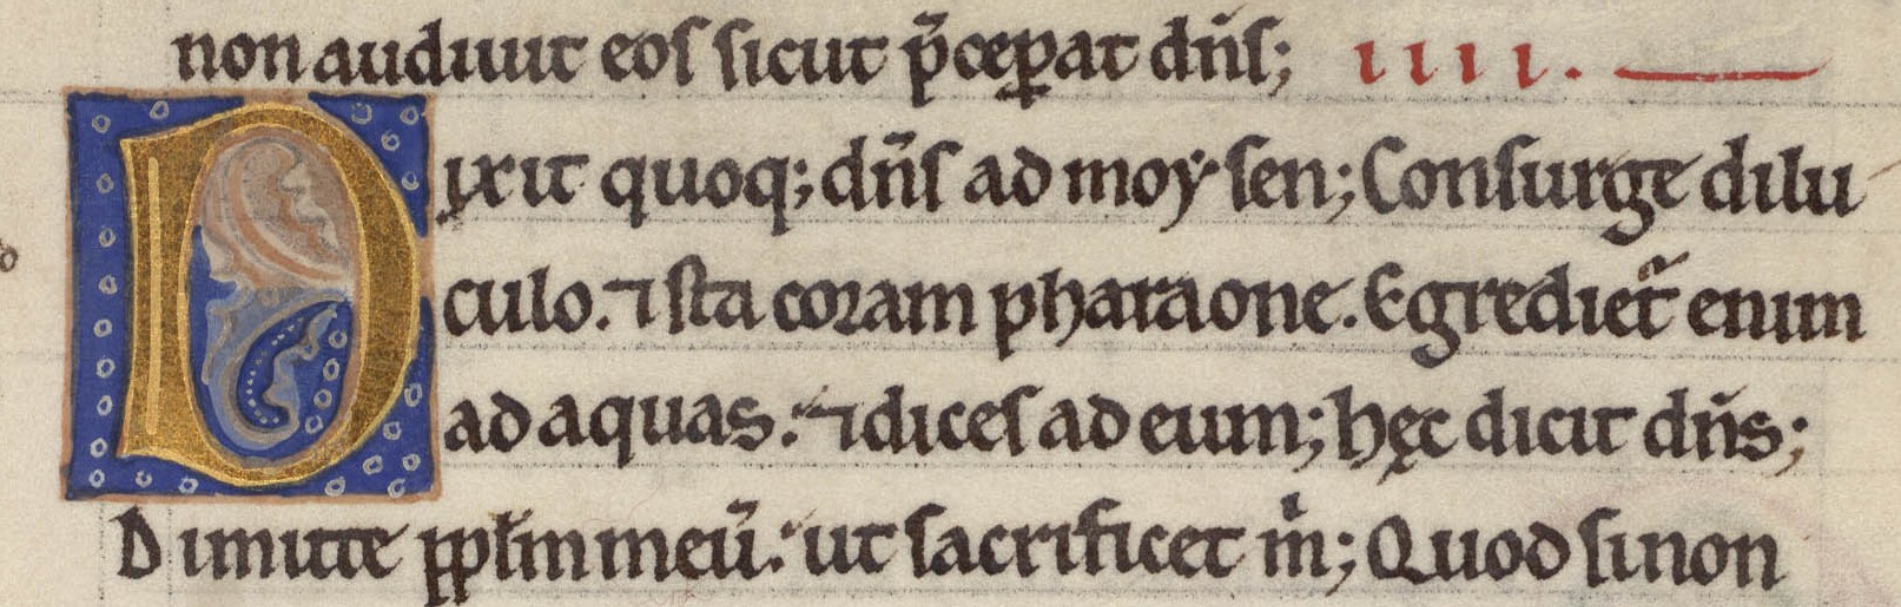 non audiuit eos sicut p̄cep̱at dn̄s; ıııı.
Dixit quoq; dn̄s ad moysen; Consurge dilu
culo. ⁊ sta coram pharaone. Egrediet᷑ enim
ad aquas. ⁊ dices ad eum; hęc dicit dn̄s;
Dimitte ppl̄m meū. ut sacrificet m̄; Quod si non